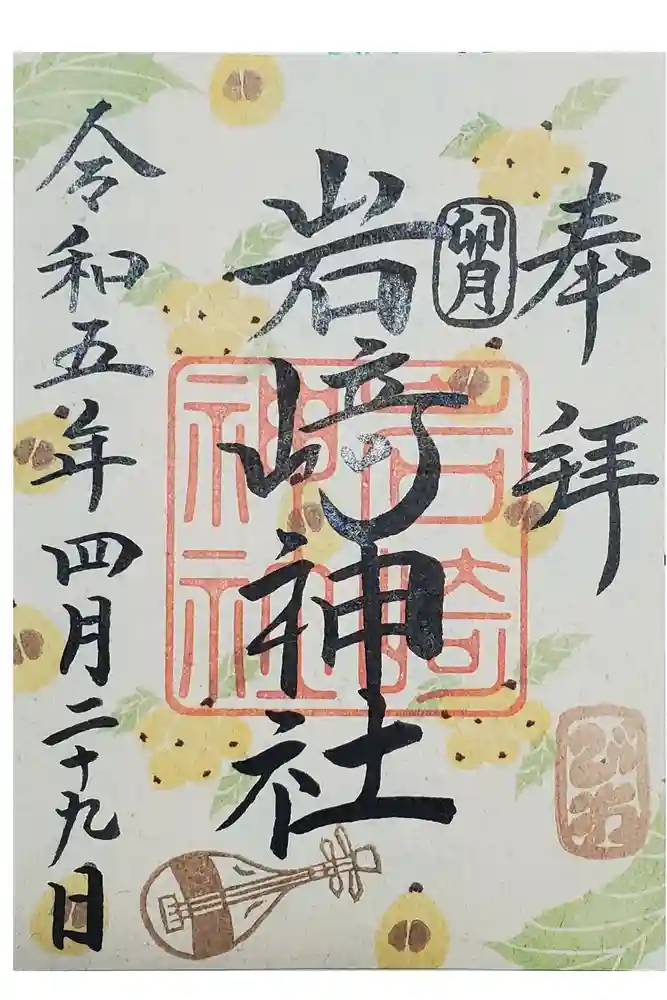 奉拝
卯月
岩﨑神社
岩崎
神社
令和五年四月二十九日